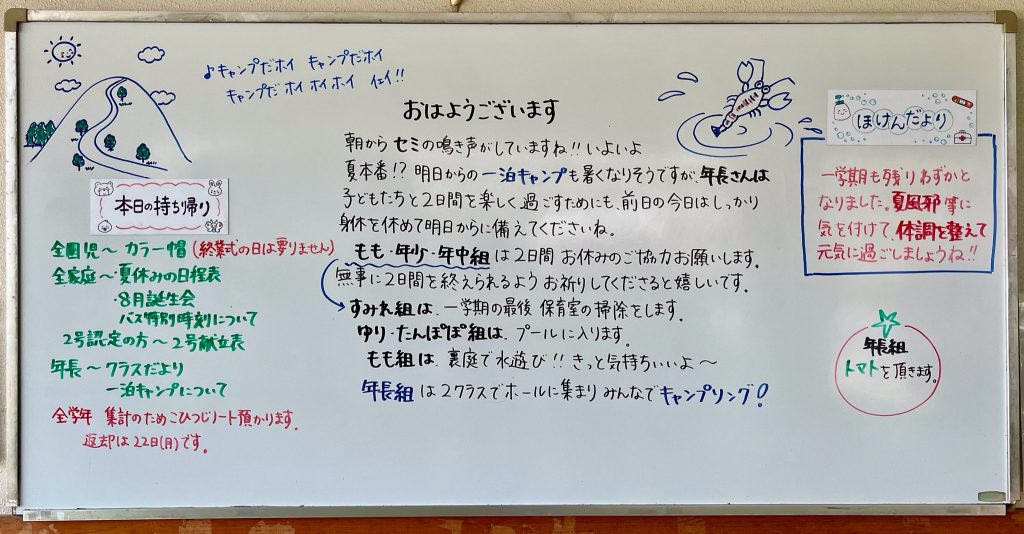 ♪キャンプだホイ キャンプだホイ
キャンプだ ホイ ホイ ホイ イェイ!!
本日の持ち帰り
全園児〜 カラー帽 (終業式の日は要りません)
全家庭〜 夏休みの日程表
・8月誕生会
バス特別時刻について
2号認定の方〜 2号献立表
年長〜 クラスだより
一泊キャンプについて
全学年 集計のためこひつじノート預かります。
返却は22日(月)です。
おはようございます
朝から セミの鳴き声がしていますね!! いよいよ
夏本番!? 明日からの 一泊キャンプも暑くなりそうですが、年長さんは
子どもたちと2日間を楽しく過ごすためにも、前日の今日はしっかり
身体を休めて明日からに備えてくださいね。
もも・年少・年中組は2日間 お休みのご協力お願いします。
無事に2日間を終えられるよう お祈りしてくださると嬉しいです。
すみれ組は、一学期の最後 保育室の掃除をします。
ゆり・たんぽぽ組は、プールに入ります。
もも組は、裏庭で水遊び!! きっと気持ちいいよ〜
年長組は2クラスでホールに集まり みんなでキャンプソング!
ほけんだより
一学期も残りわずかと
なりました。夏風邪等に
気を付けて、体調を整えて
元気に過ごしましょうね!!
年長組
トマトを頂きます。